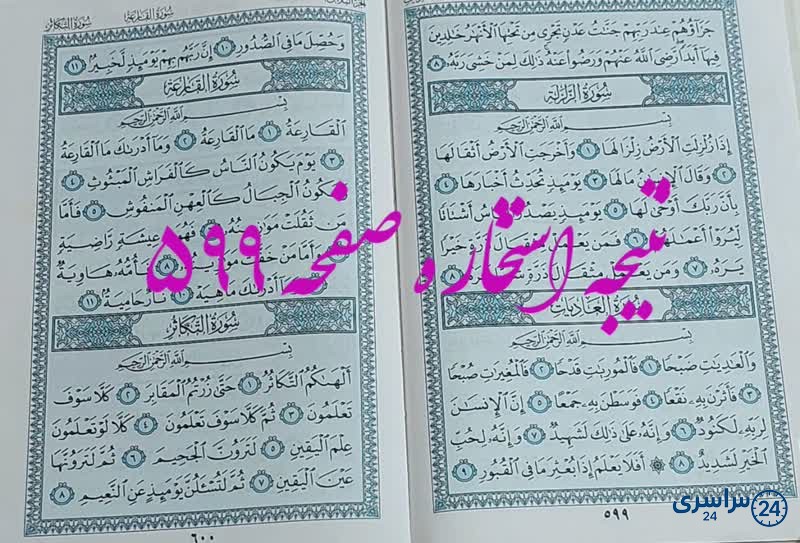 جَزَآؤُهُمْ عِندَ رَبِّهِمْ جَنَّٰتُ عَدْنٍ تَجْرِى مِن تَحْتِهَا ٱلْأَنْهَٰرُ خَٰلِدِينَ
فِيهَآ أَبَدًا رَّضِىَ ٱللَّهُ عَنْهُمْ وَرَضُوا۟ عَنْهُ ذَٰلِكَ لِمَنْ خَشِىَ رَبَّهُۥ ٨
سُورَةُ الزَّلْزَلَة
بِسْمِ ٱللَّهِ ٱلرَّحْمَٰنِ ٱلرَّحِيمِ
إِذَا زُلْزِلَتِ ٱلْأَرْضُ زِلْزَالَهَا ١ وَأَخْرَجَتِ ٱلْأَرْضُ أَثْقَالَهَا
٢ وَقَالَ مَا لَهَا ٣ يَوْمَئِذٍ تُحَدِّثُ أَخْبَارَهَا ٤
بِأَنَّ رَبَّكَ أَوْحَىٰ لَهَا ٥ يَوْمَئِذٍ أَشْتَاتًا
لِّيُرَوْا۟ أَعْمَٰلَهُمْ ٦ فَمَن خَيْرًا
يَرَهُۥ ٧ ٨
سُورَةُ العَادِيَات
بِسْمِ ٱللَّهِ ٱلرَّحْمَٰنِ ٱلرَّحِيمِ
وَٱلْعَٰدِيَٰتِ ضَبْحًا ١ فَٱلْمُورِيَٰتِ قَدْحًا ٢ فَٱلْمُغِيرَٰتِ صُبْحًا
٣ فَأَثَرْنَ بِهِۦ نَقْعًا ٤ فَوَسَطْنَ بِهِۦ جَمْعًا ٥ إِنَّ ٱلْإِنسَٰنَ
لِرَبِّهِۦ لَكَنُودٌ ٦ وَإِنَّهُۥ عَلَىٰ ذَٰلِكَ لَشَهِيدٌ ٧ وَإِنَّهُۥ لِحُبِّ
ٱلْخَيْرِ لَشَدِيدٌ ٨ ۞ أَفَلَا يَعْلَمُ إِذَا بُعْثِرَ مَا فِى ٱلْقُبُورِ ٩
٥٩٩
سُورَةُ القَارِعَة
سُورَةُ التَّكَاثُر
وَحُصِّلَ مَا فِى ٱلصُّدُورِ ١٠ إِنَّ رَبَّهُم بِهِمْ يَوْمَئِذٍ لَّخَبِيرٌۢ ١١
سُورَةُ القَارِعَة
بِسْمِ ٱللَّهِ ٱلرَّحْمَٰنِ ٱلرَّحِيمِ
ٱلْقَارِعَةُ ١ مَا ٱلْقَارِعَةُ ٢ وَمَآ أَدْرَىٰكَ مَا ٱلْقَارِعَةُ
٣ يَوْمَ يَكُونُ ٱلنَّاسُ كَٱلْفَرَاشِ ٱلْمَبْثُوثِ ٤
وَتَكُونُ ٱلْجِبَالُ كَٱلْعِهْنِ ٱلْمَنفُوشِ ٥ فَأَمَّا
مَن ثَقُلَتْ فَهُوَ عِيشَةٍ رَّاضِيَةٍ
وَأَمَّا مَنْ خَفَّتْ ٨ فَأُمُّهُۥ هَاوِيَةٌ
أَدْرَىٰكَ مَا هِيَهْ ١٠ نَارٌ حَامِيَةٌۢ ١١
سُورَةُ التَّكَاثُر
بِسْمِ ٱللَّهِ ٱلرَّحْمَٰنِ ٱلرَّحِيمِ
أَلْهَىٰكُمُ ٱلتَّكَاثُرُ ١ حَتَّىٰ زُرْتُمُ ٱلْمَقَابِرَ ٢ كَلَّا سَوْفَ
تَعْلَمُونَ ٣ ثُمَّ كَلَّا سَوْفَ تَعْلَمُونَ ٤ كَلَّا لَوْ تَعْلَمُونَ
عِلْمَ ٱلْيَقِينِ ٥ لَتَرَوُنَّ ٱلْجَحِيمَ ٦ ثُمَّ لَتَرَوُنَّهَا
عَيْنَ ٱلْيَقِينِ ٧ ثُمَّ لَتُسْـَٔلُنَّ يَوْمَئِذٍ عَنِ ٱلنَّعِيمِ ٨
٦٠٠
نتیجه استخاره صفحه ۵۹۹
سراسری 24
24